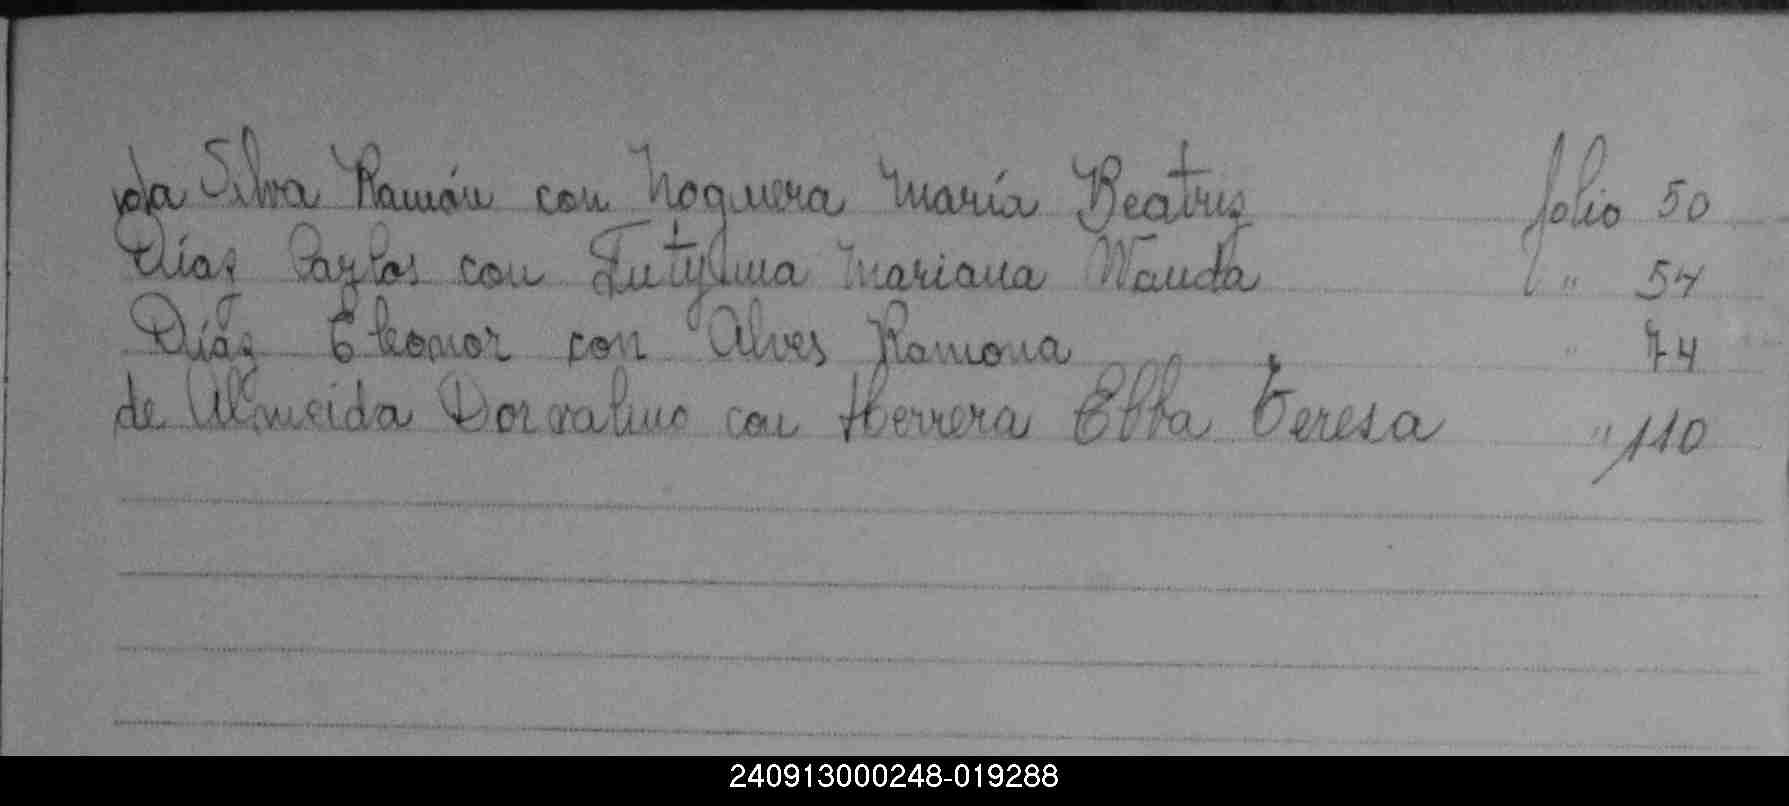 da Silva Ramón con Noguera María Beatriz folio 50
Díaz Carlos con Mariana Wanda " 54
Díaz Eleonor con Alves Ramona " 74
de Almeida Dorvalino con Herrera Elba Teresa " 110
240913000248-019288